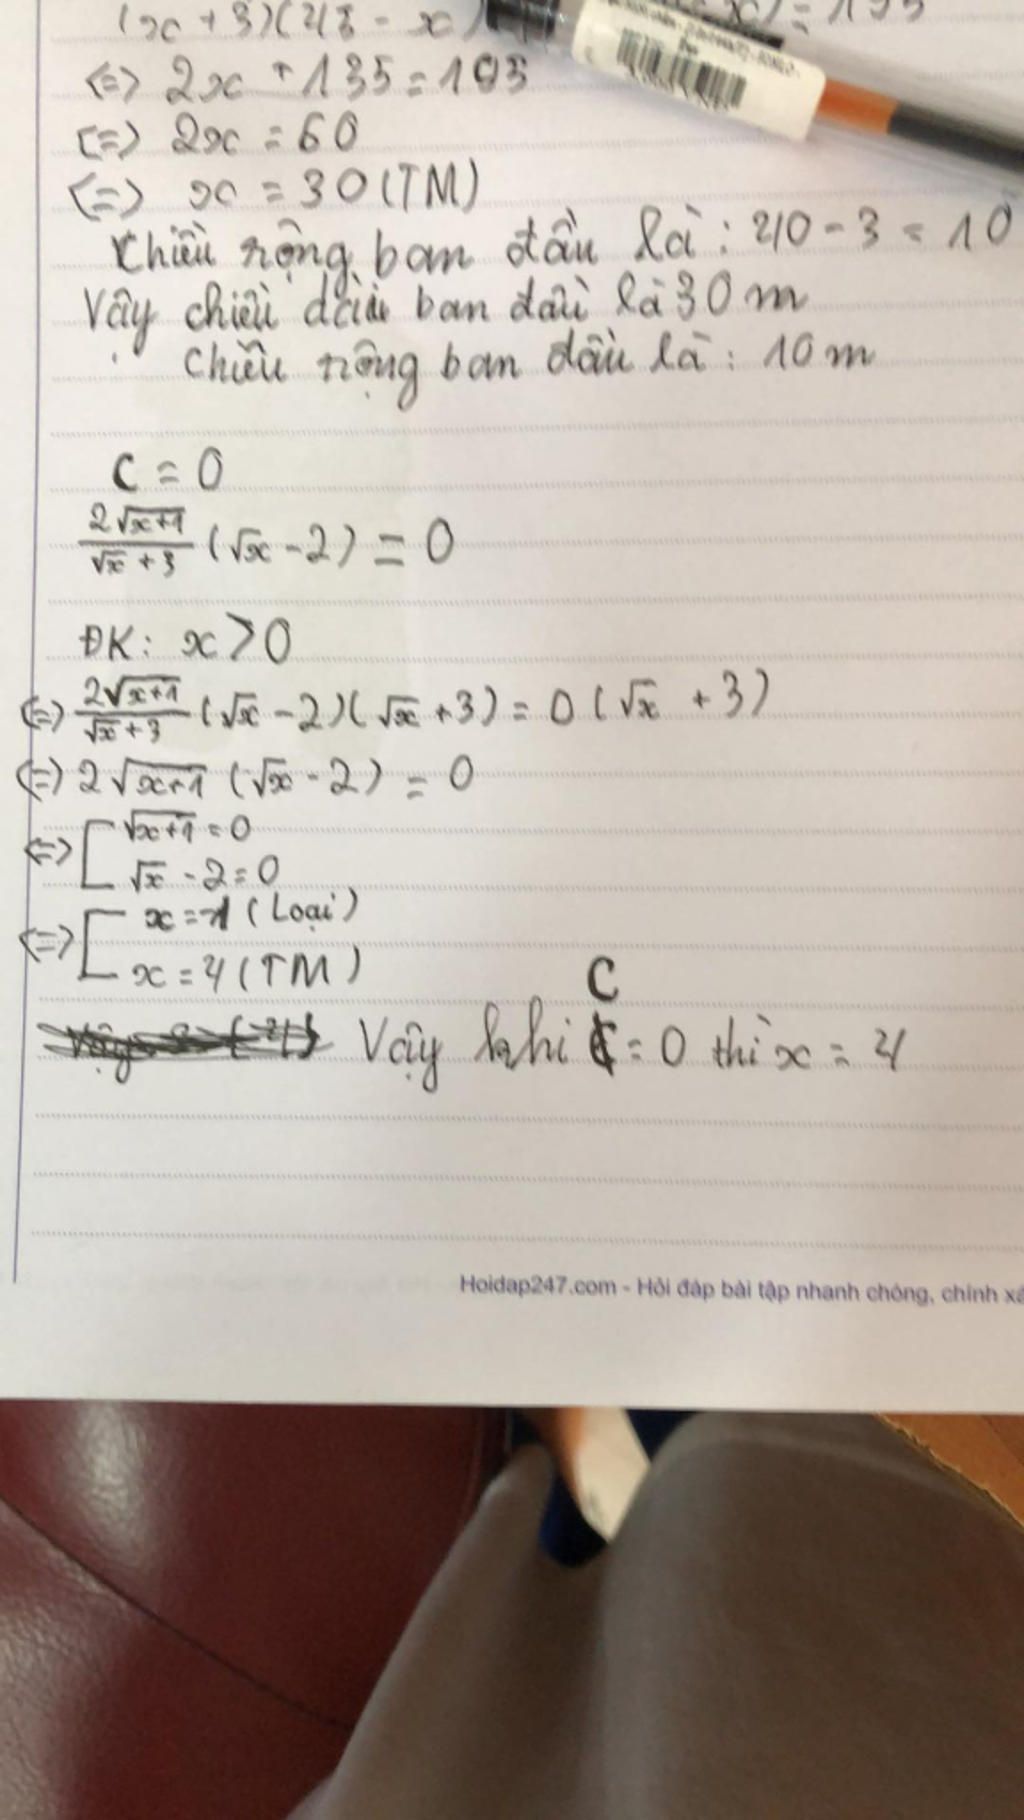 (x + 3)(43 - x)
⇔ 2x + 135 = 195
⇔ 2x = 60
⇔ x = 30 (TM)
Chiều rộng ban đầu là : 40 - 3 = 10
Vậy chiều dài ban đầu là 30 m
Chiều rộng ban đầu là : 10 m
C = 0
2√x+1 / √x + 3 (√x - 2) = 0
ĐK: x > 0
⇔ 2√x+1 / √x + 3 (√x - 2)(√x + 3) = 0 (√x + 3)
⇔ 2√x+1 (√x - 2) = 0
⇔ [ √x+1 = 0
√x - 2 = 0
⇔ [ x = -1 (Loại)
x = 4 (TM)
C
Vậy khi = 0 thì x = 4
Hoidap247.com - Hỏi đáp bài tập nhanh chóng, chính xá